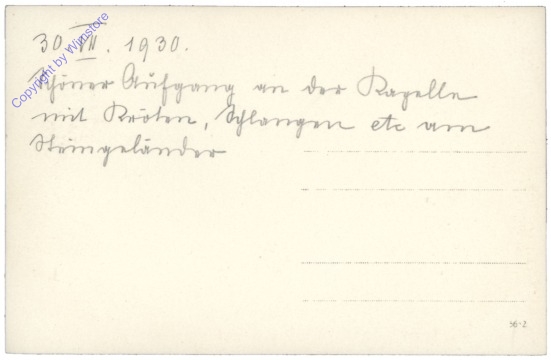 30. VII. 1930.
Schöner Aufgang an der Kapelle
mit Kröten, Schlangen etc am
Steingeländer
Copyright by Wimstore
36-2